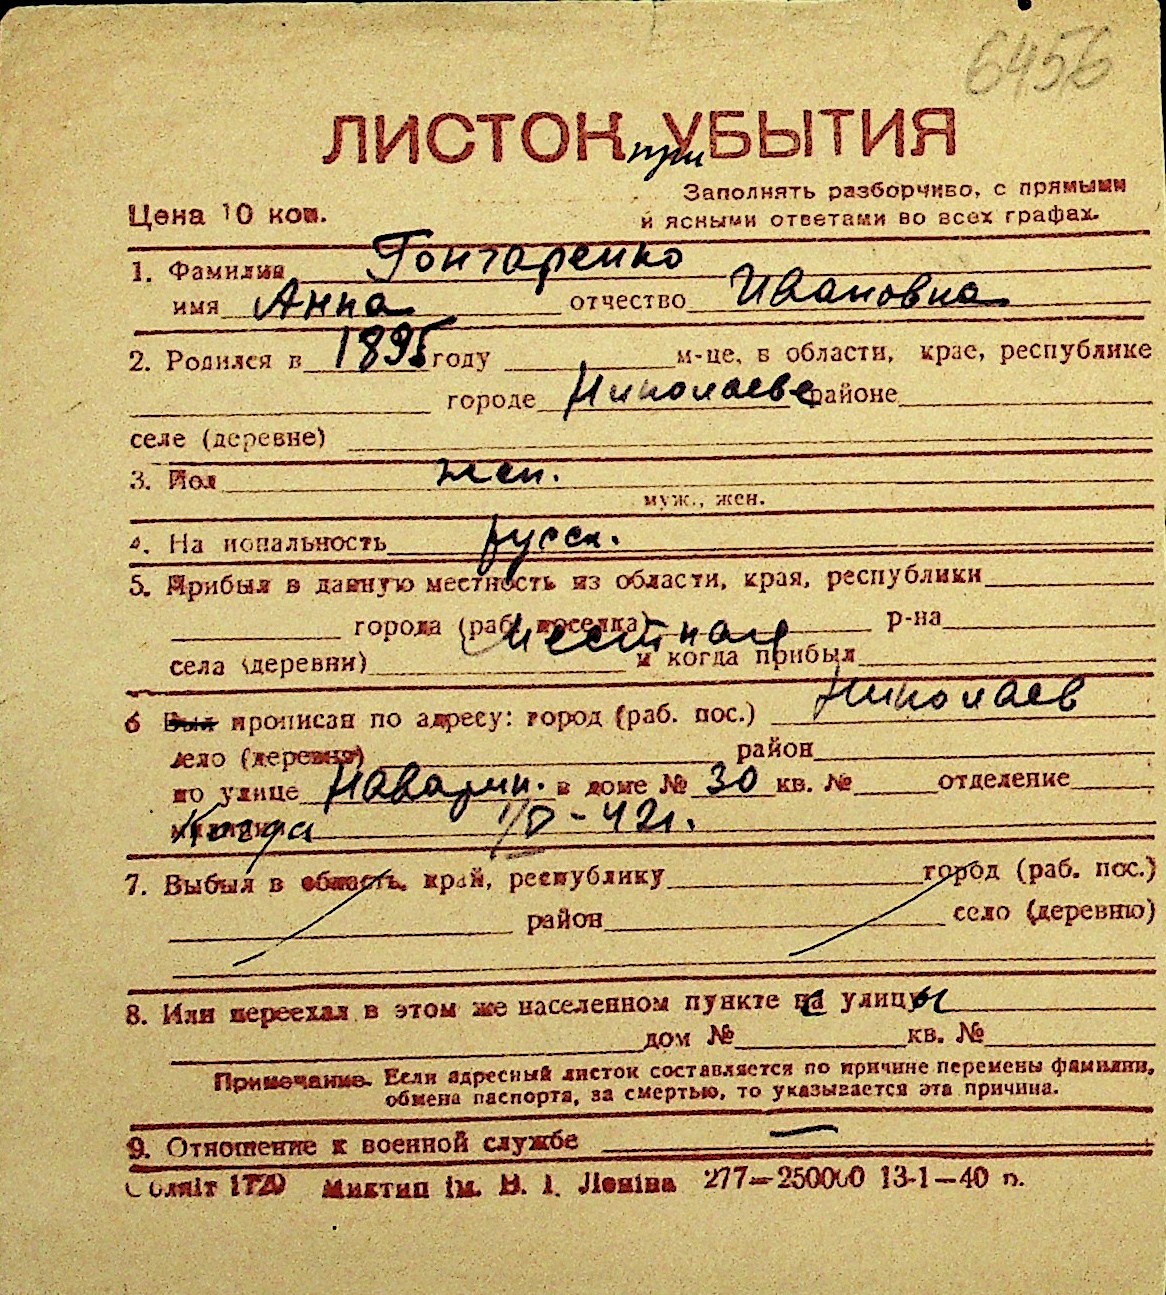 6456
ЛИСТОК при УБЫТИЯ
Заполнять разборчиво, с прямыми
Цена 10 коп.
и ясными ответами во всех графах.
1. Фамилия Гончаренко
имя Анна отчество Ивановна
2. Родился в 1895 году м-це, в области, крае, республике
городе Николаеве районе
селе (деревне)
3. Пол жен.
муж., жен.
4. Национальность русск.
5. Прибыл в данную местность из области, края, республики
города (раб. поселка) местная р-на
села (деревни) и когда прибыл
6 Был прописан по адресу: город (раб. пос.) Николаев
село (деревня) район
по улице Наварин. в доме № 30 кв. № отделение
Когда - 42 г.
7. Выбыл в область, край, республику город (раб. пос.)
район село (деревню)
8. Или переехал в этом же населенном пункте с улицы
дом № кв. №
Примечание. Если адресный листок составляется по причине перемены фамилии,
обмена паспорта, за смертью, то указывается эта причина.
9. Отношение к военной службе —
Облліт 1720 Миктип ім. В. І. Леніна 277—250000 13-1—40 р.